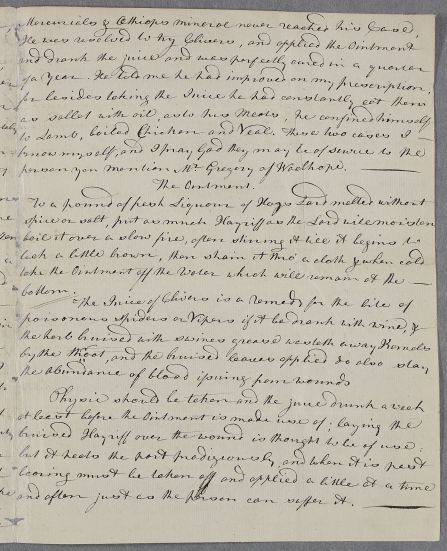 Mercurials & Ethiops mineral never reached his Case,
He was resolved to try Clivers, and applied the Ointment
and drank the juice and was perfectly cured in a quarter
of a Year. He tells me he had improved on my prescription,
for besides taking the Juice he had constantly eat them
as sallet with oil, as to his Meats, he confined himself
to Lamb, boiled Chicken and Veal. These two cases I
know myself, and I pray God they may be of service to the
person you mention Mr. Gregory of Wadhope.
The Ointment.
To a pound of fresh Liquour of Hogs Lard melted without
spice or salt, put as much Hayriff as the Lard will moisten
boil it over a slow fire, often stirring it till it begins to
look a little brown, then strain it thro' a cloth & when cold
take the Ointment off the Water which will remain at the
bottom.
The Juice of Clivers is a remedy for the bite of
poisonous spiders or Vipers if it be drank with wine, &
the herb bruised with swines grease wasteth away Kernels
by the throat, and the bruised leaves applied do also stay
the abundance of blood issuing from wounds
Physic should be taken and the juice drunk a week
at least before the Ointment is made use of; laying the
bruised Hayriff over the wound is thought to be of use:
but it heats the part prodigiously, and when it is past
bearing must be taken off and applied a little at a time
and often just as the person can suffer it.